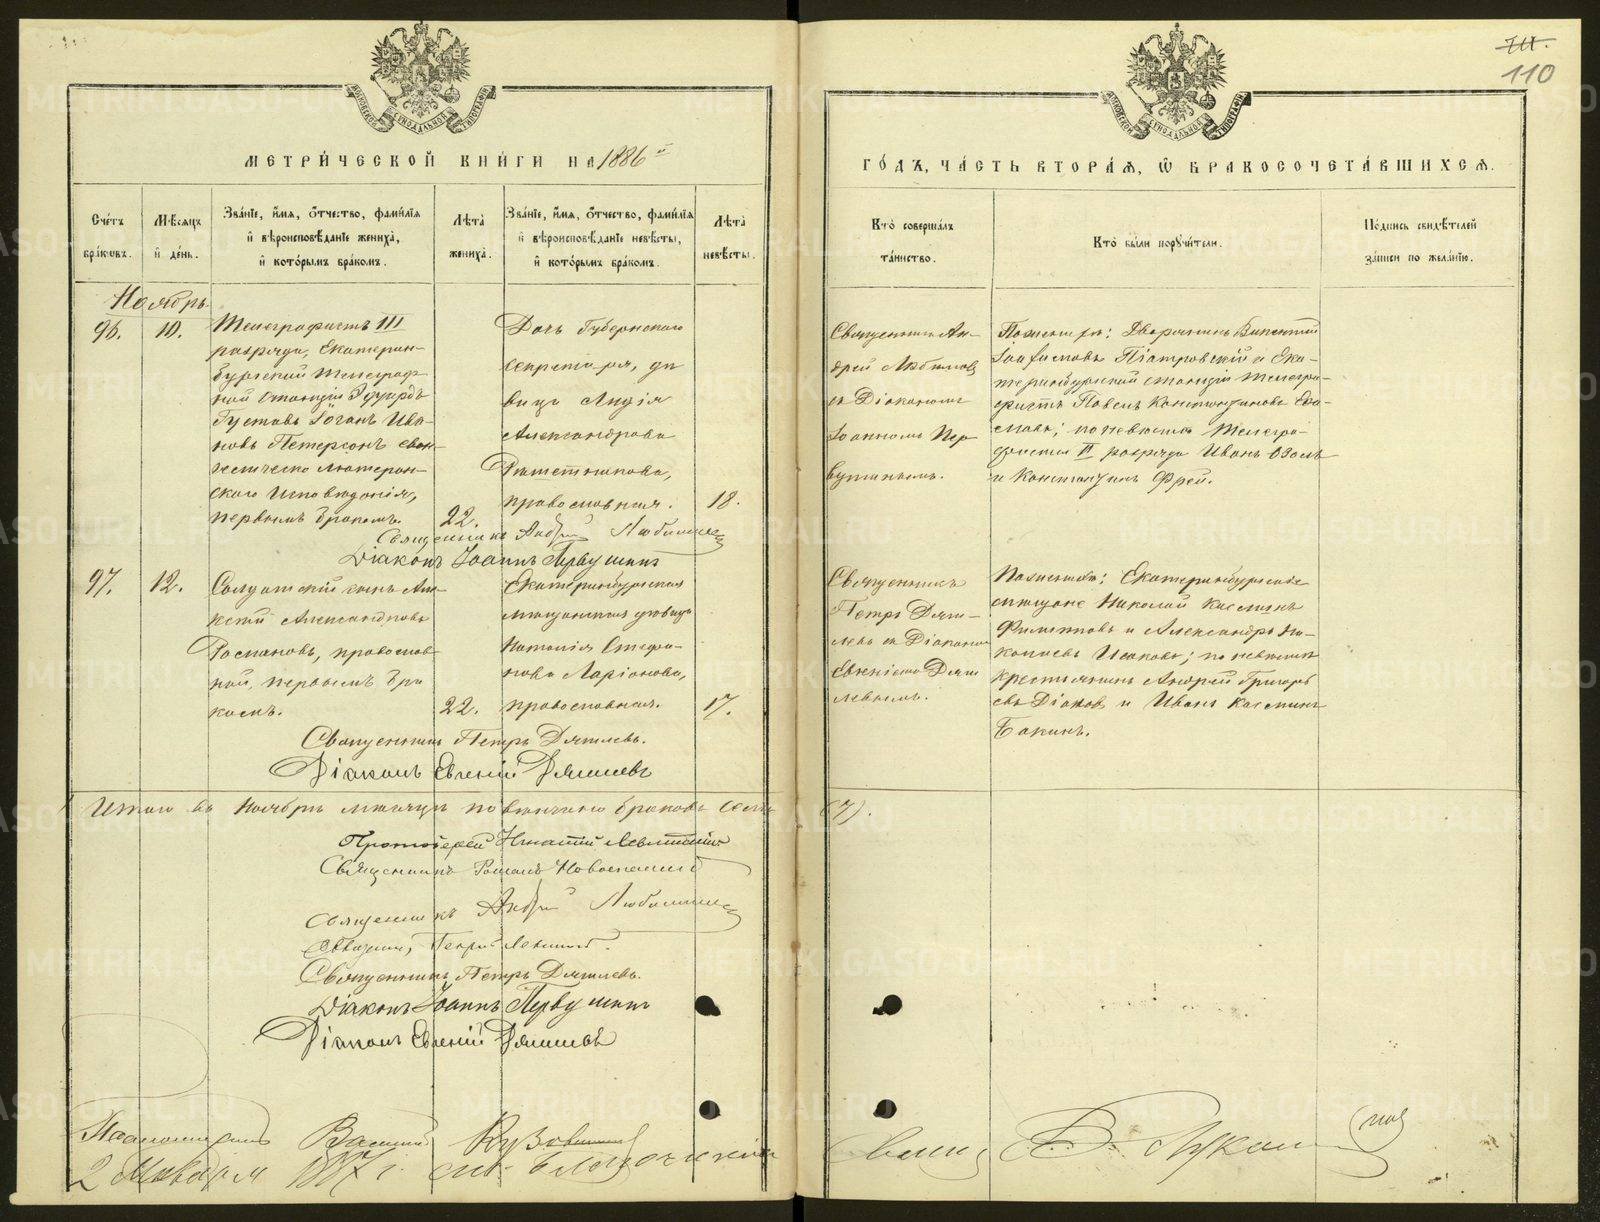 110
МЕТРИЧЕСКОЙ КНИГИ НА 1886й
ГОДЪ, ЧАСТЬ ВТОРАЯ, Ѿ БРАКОСОЧЕТАВШИХСЯ.
Счетъ браковъ.
Мѣсяцъ и день.
Званіе, имя, отчество, фамилія
и вѣроисповѣданіе жениха,
и которымъ бракомъ.
Лѣта жениха.
Званіе, имя, отчество, фамилія
и вѣроисповѣданіе невѣсты,
и которымъ бракомъ.
Лѣта невѣсты.
Кто совершалъ таинство.
Кто были поручители.
Подпись свидѣтелей
записи по желанію.
Ноябрь
96. 10.
Телеграфистъ III
разряда, Екатерин-
бургской телеграф
ной станціи Эдуардъ
Густавъ Іоганъ Ива-
новъ Петерсонъ еван-
гелическо лютеран-
скаго исповѣданія,
первымъ бракомъ.
22.
Дочь Губернскаго
секретаря, дѣ
вица Лидія
Александрова
Рѣшетникова,
православная.
18.
Священникъ Ан-
дрей Любимовъ
съ Діакономъ
Іоанномъ Пер
вушинымъ.
По женихѣ: Дворянинъ Викентій
Іоакимовъ Піотровскій и Ека-
теринбургской станціи телегра-
фистъ Павелъ Константиновъ
по невѣстѣ телегра-
фисты II разряда Иванъ Озолъ
и Константинъ Фрей.
Священникъ Андрей Любимовъ
Діаконъ Іоаннъ Первушинъ
97. 12.
Солдатскій сынъ Але-
ксѣй Александровъ
Росмановъ, православ
ный, первымъ бра
комъ.
22.
Екатеринбургская
мѣщанская дѣвица
Наталія Стефа-
нова Ларіонова,
православная.
17.
Священникъ
Петръ Дягилевъ
съ Діакономъ
Евгеніемъ Дяги
левымъ.
По женихѣ: Екатеринбургскіе
мѣщане Николай Косминъ
Филиповъ и Александръ
Исаковъ; по невѣстѣ
крестьянинъ Андрей Григорь
евъ Дьяковъ и Иванъ Косминъ
Бакинъ.
Священникъ Петръ Дягилевъ.
Діаконъ Евгеній Дягилевъ
Итого въ Ноябрѣ мѣсяцѣ повѣнчано браковъ семь (7).
Протоіерей Игнатій Левитскій
Священникъ Романъ Новоспасскій
Священникъ Андрей Любимовъ
Священникъ Петръ Дягилевъ.
Діаконъ Іоаннъ Первушинъ
Діаконъ Евгеній Дягилевъ
Василій
2 1887 г.